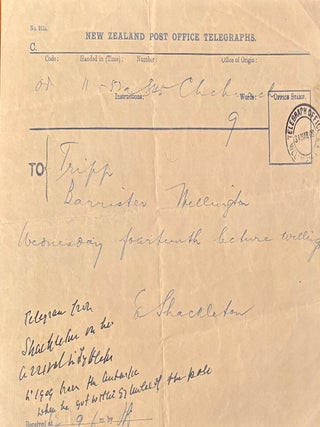 No. 211a.
NEW ZEALAND POST OFFICE TELEGRAPHS.
C.
Code: Handed in (Time): Number: Office of Origin:
Instructions: Words:
9
OFFICE STAMP.
TELEGRAPH OFFICE
TO Tripp
Barrister Wellington
Wednesday fourteenth lecture
E Shackleton
Telegram from
Shackleton on his
arrival
in 1909 from the Antarctic
when he got within 97 miles of the pole
Received at